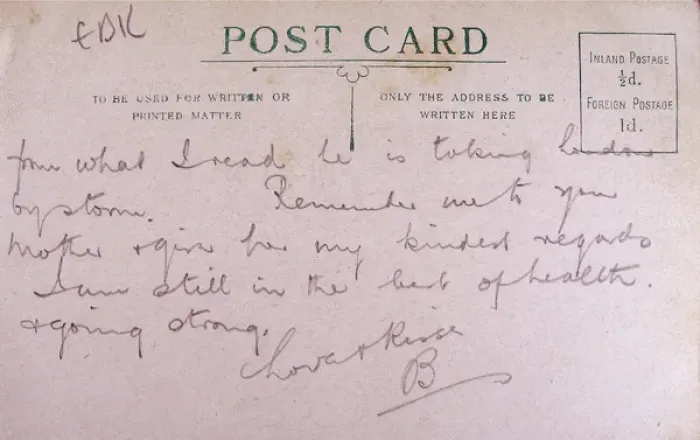 EBK
POST CARD
TO BE USED FOR WRITTEN OR
PRINTED MATTER
ONLY THE ADDRESS TO BE
WRITTEN HERE
INLAND POSTAGE
½d.
FOREIGN POSTAGE
1d.
from what I read he is taking London
by storm. Remember me to your
Mother & give her my kindest regards
I am still in the best of health.
& going strong.
Love & Kisses
B